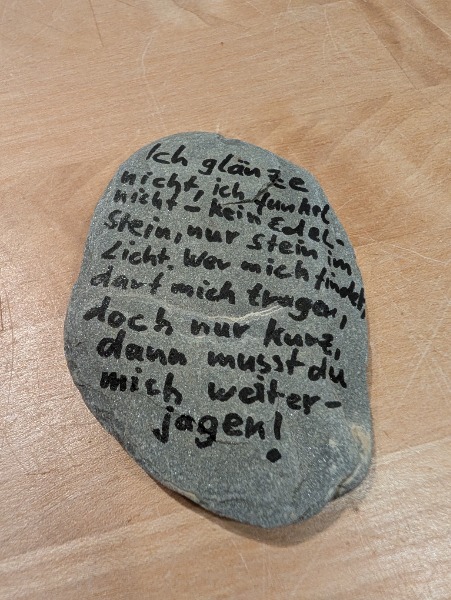 Ich glänze
nicht, ich funkel
nicht - kein Edel-
stein, nur Stein im
Licht. Wer mich findet,
darf mich tragen,
doch nur kurz,
dann musst du
mich weiter-
jagen!